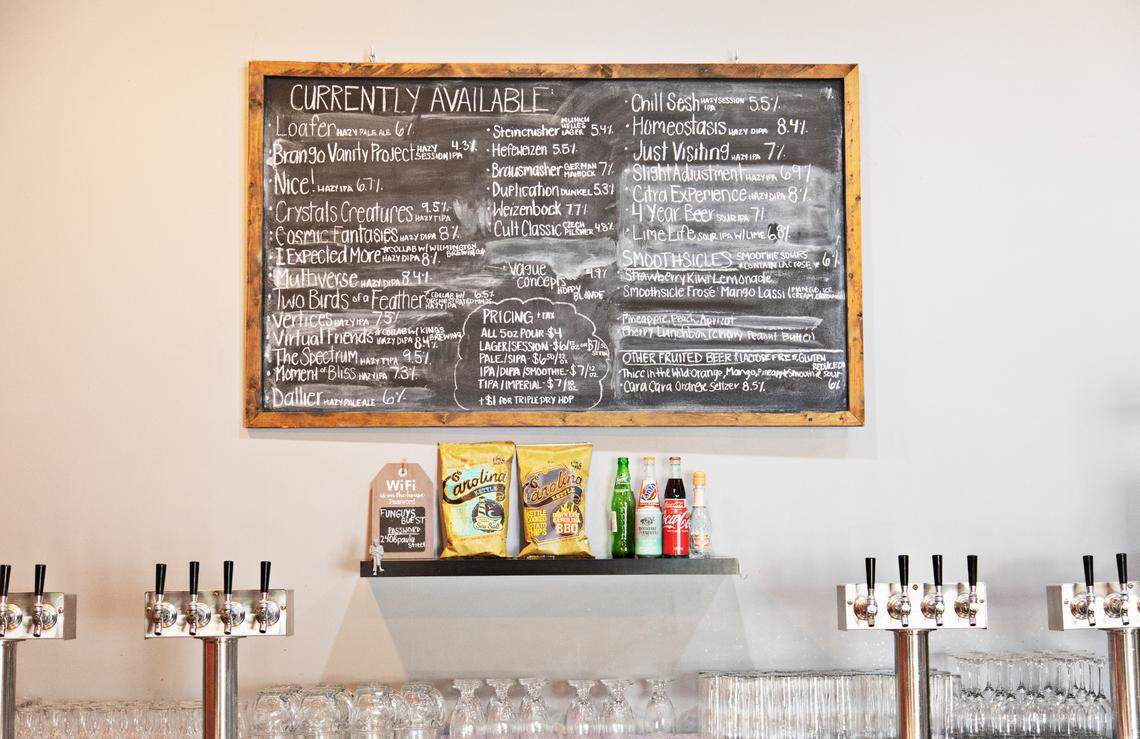 CURRENTLY AVAILABLE:
Loafer HAZY PALE ALE 6%
Brango Vanity Project HAZY SESSION IPA 4.3%
Nice! HAZY IPA 6.7%
Crystals Creatures HAZY TIPA 9.5%
Cosmic Fantasies HAZY DIPA 8%
I Expected More *COLLAB W/ WILMINGTON BREWING CO HAZY DIPA 8%
Multiverse HAZY DIPA 8.4%
Two Birds of a Feather *COLLAB W/ HAZY IPA 6.5%
Vertices HAZY IPA 7.5%
Virtual Friends *COLLAB W/ KINGS BREWING HAZY DIPA 8.4%
The Spectrum HAZY TIPA 9.5%
Moment of Bliss HAZY IPA 7.3%
Dallier HAZY PALE ALE 6%
Steincrusher MUNICH HELLES LAGER 5.4%
Hefeweizen 5.5%
Brausmasher GERMAN MAIBOCK 7%
Duplication DUNKEL 5.3%
Weizenbock 7.7%
Cult Classic CZECH PILSNER 4.8%
Vague Concepts HOPPY BLONDE 4.9%
PRICING + TAX
ALL 5OZ POUR - $4
LAGER/SESSION - $6/13 OZ OR $7/
PALE/SIPA - $6.50/
IPA/DIPA/SMOOTHIE - $7/12 OZ
TIPA/IMPERIAL - $7/10 OZ
+$1 FOR TRIPLE DRY HOP
Chill Sesh HAZY SESSION IPA 5.5%
Homeostasis HAZY DIPA 8.4%
Just Visiting HAZY IPA 7%
Slight Adjustment HAZY IPA 6.9%
Citra Experience HAZY DIPA 8%
4 Year Beer SOUR IPA 7%
Lime Life SOUR IPA W/ LIME 6.8%
SMOOTHSICLES SMOOTHIE SOURS *CONTAIN LACTOSE* 6%
Strawberry Kiwi Lemonade
Smoothsicle Frosé Mango Lassi (MANGO, ICE CREAM,
Pineapple, Peach, Apricot
Cherry Lunchbox (Cherry Peanut Butter)
OTHER FRUITED BEER * LACTOSE FREE GLUTEN REDUCED
Thicc in the Wild Orange, Mango, Pineapple Smoothie Sour 6%
Cara Cara Orange Seltzer 8.5%
WiFi
is on the house
Password
FUNGUYS GUEST
PASSWORD
2408paula
street
Carolina
KETTLE
Sea Salt
Carolina
KETTLE
KETTLE COOKED POTATO CHIPS
DOWN EAST CAROLINA BBQ
Fanta
Coca-Cola